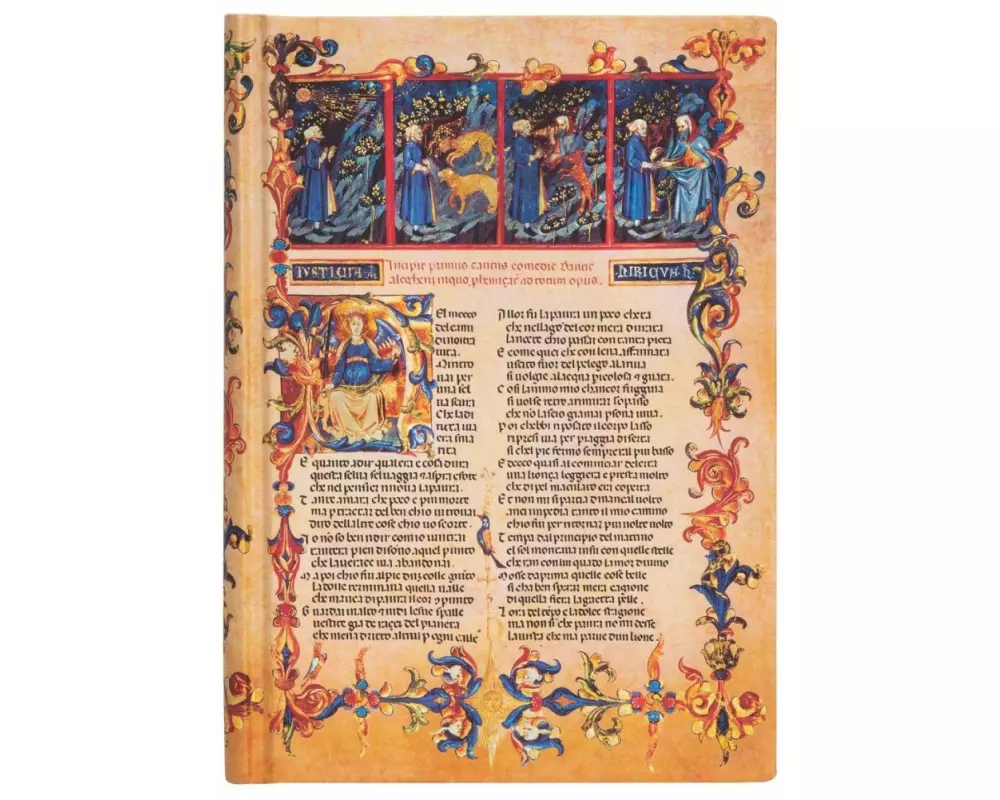 IUSTICIA
Incipit primus cantus comedie Dantis
alegherii inquo plemiçat ad totum opus.
El meçço
del cami
di nostra
uita.
Mi ritro
uai per
una sel
ua scura
Che la di
ritta uia
era sma
rita
E quanto a dir qual era e cosa dura
questa selua seluaggia & aspra e forte
che nel pensier rinoua la paura.
Tant e amara che poco e piu morte
ma p tractar del ben chio ui trouai
diro dell altre cose chio uo scorte.
Io no so ben ridir com io uintrai
tant era pien di sono a quel punto
che la uerace uia abandonai.
Ma poi chio fui al pie dun colle giunto
la doue terminaua quella ualle
che mauea di paura il cor compunto
Guardai in alto & uidi le sue spalle
uestite gia de raggi del pianeta
che mena dritto altrui p ogni calle
Allor fu la paura un poco cheta
che nel lago del cor mera durata
la nocte chio passai con tanta pieta
E come quei che con lena affannata
uscito fuor del pelego a la riua
si uolgie a l acqua picolosa & guata.
Cosi l animo mio chancor fuggiua
si uolse retro a rimirar lo passo
che no lascio giamai psona uiua.
Poi chebbi riposato il corpo lasso
ripresi uia per piaggia diserta
si chel pie fermo sempre ra il piu basso
Et ecco quasi al cominciar de lerta
una lionça leggiera e presta molto
che di pel maculato era coperta
Et non mi si partia dinançi al uolto
anci impedia tanto il mio camino
chio fui per ritornar piu uolte uolto
Temp era dal principio del matino
el sol montaua insu con quelle stelle
cheran con lui quando lamor diuino
Mosse da prima quelle cose belle
si cha ben sperar mera cagione
di quella fiera la gaetta pelle.
Lora del tepo e la dolce stagione
ma non si che paura no mi desse
la uista che ma parue dun lione.